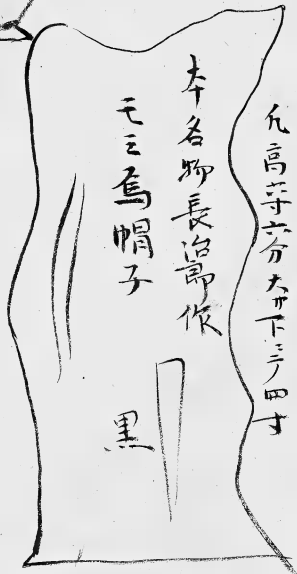 凡高サ寸六分大サ下ニテ四寸
本名物長治郎作
モミ烏帽子
黒